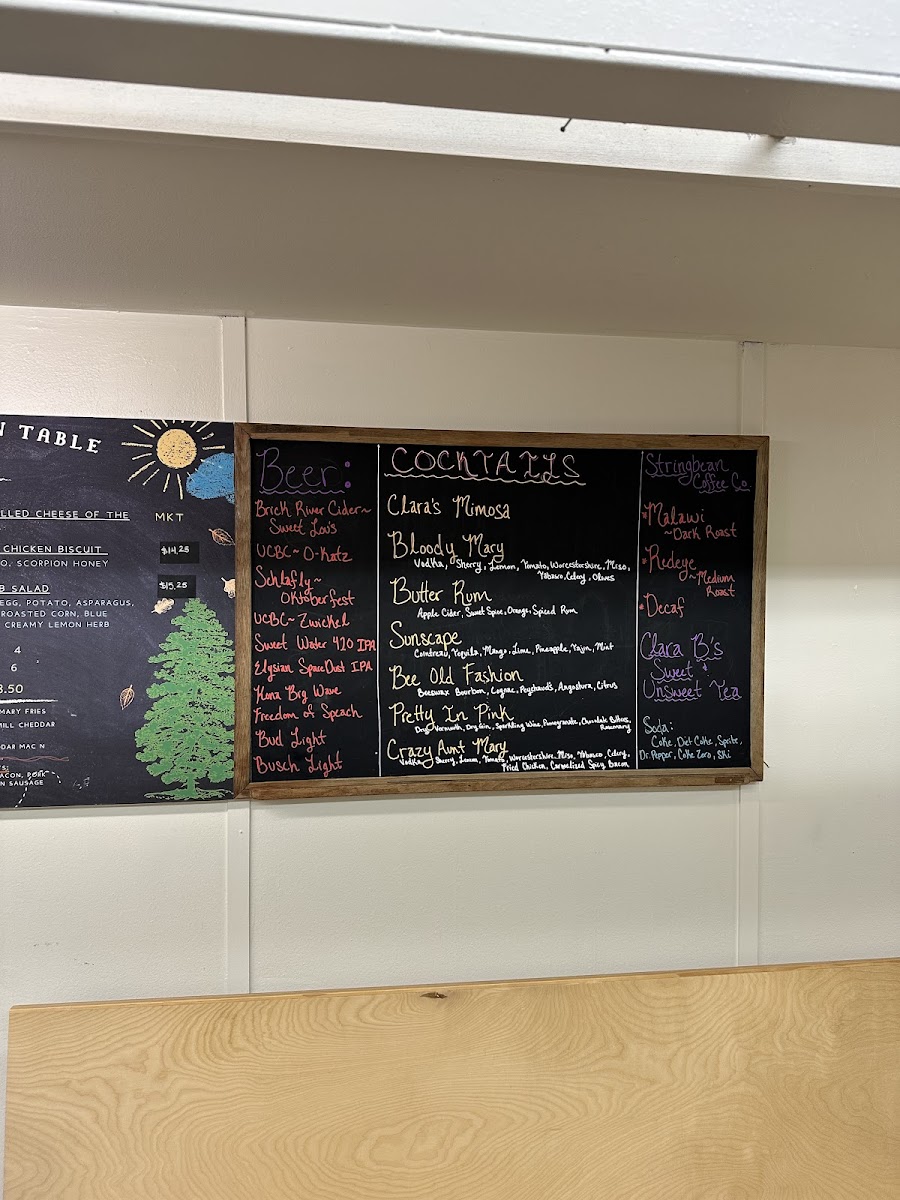 N TABLE
LLED CHEESE OF THE
MKT
CHICKEN BISCUIT
$14.25
O, SCORPION HONEY
B SALAD
$15.25
EGG, POTATO, ASPARAGUS,
ROASTED CORN, BLUE
CREAMY LEMON HERB
4
6
3.50
MARY FRIES
MILL CHEDDAR
DAR MAC N
ACON, PORK
N SAUSAGE
Beer:
Brick River Cider~
Sweet Lou's
UCBC~ O-Katz
Schlafly~
Oktoberfest
UCBC~ Zwickel
Sweet Water 420 IPA
Elysian SpaceDust IPA
Kona Big Wave
Freedom of Speach
Bud Light
Busch Light
COCKTAILS
Clara's Mimosa
Bloody Mary
Vodka, Sherry, Lemon, Tomato, Worcestershire, Miso,
Tabasco, Celery, Olives
Butter Rum
Apple Cider, Sweet Spice, Orange, Spiced Rum
Sunscape
Cointreau, Tequila, Mango, Lime, Pineapple, Tajin, Mint
Bee Old Fashion
Beeswax Bourbon, Cognac, Peychaud's, Angostura, Citrus
Pretty In Pink
Dry Vermouth, Dry Gin, Sparkling Wine, Pomegranate, Chocolate Bitters,
Rosemary
Crazy Aunt Mary
Vodka, Sherry, Lemon, Tomato, Worcestershire, Miso, Tabasco, Celery,
Fried Chicken, Carmelized Spicy Bacon
Stringbean
Coffee Co.
*Malawi
~Dark Roast
*Redeye
~Medium
Roast
*Decaf
Clara B's
Sweet &
Unsweet Tea
Soda:
Coke, Diet Coke, Sprite,
Dr. Pepper, Coke Zero, Ski